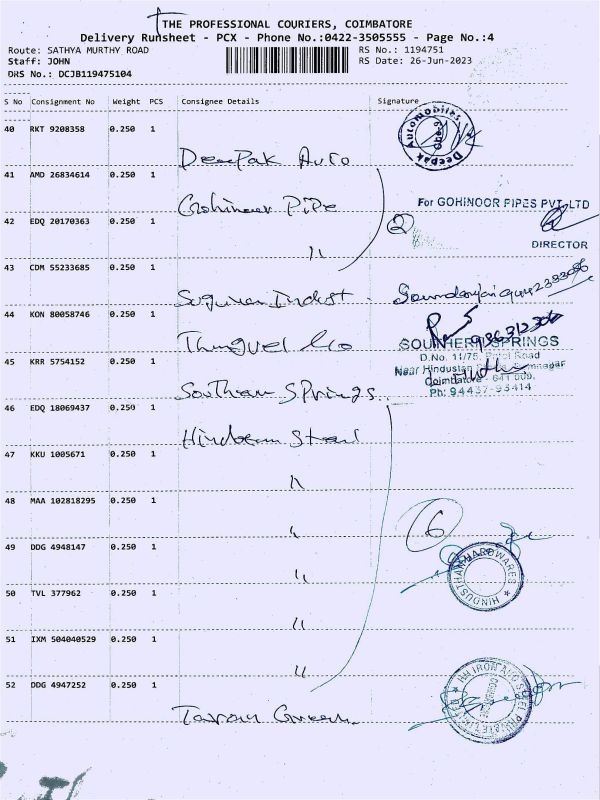 THE PROFESSIONAL COURIERS, COIMBATORE
Delivery Runsheet - PCX - Phone No.:0422-3505555 - Page No.:4
Route: SATHYA MURTHY ROAD
RS No.: 1194751
Staff: JOHN
RS Date: 26-Jun-2023
DRS No.: DCJB119475104
S No Consignment No Weight PCS Consignee Details Signature
40 RKT 9208358 0.250 1
Deepak Auto
Deepak Automobiles
41 AMD 26834614 0.250 1
Gohinoor Pipe
For GOHINOOR PIPES PVT LTD
2
DIRECTOR
42 EDQ 20170363 0.250 1
"
43 CDM 55233685 0.250 1
44 KON 80058746 0.250 1
45 KRR 5754152 0.250 1
Southern Springs
SOUTHERN SPRINGS
D.No. 11/75, Road
Near Hindustan
Coimbatore - 641 009.
Ph: 94437-93414
46 EDQ 18069437 0.250 1
47 KKU 1005671 0.250 1
"
48 MAA 102818295 0.250 1
"
6
49 DDG 4948147 0.250 1
"
HINDUSTHAN HARDWARES
50 TVL 377962 0.250 1
"
51 IXM 504040529 0.250 1
"
52 DDG 4947252 0.250 1